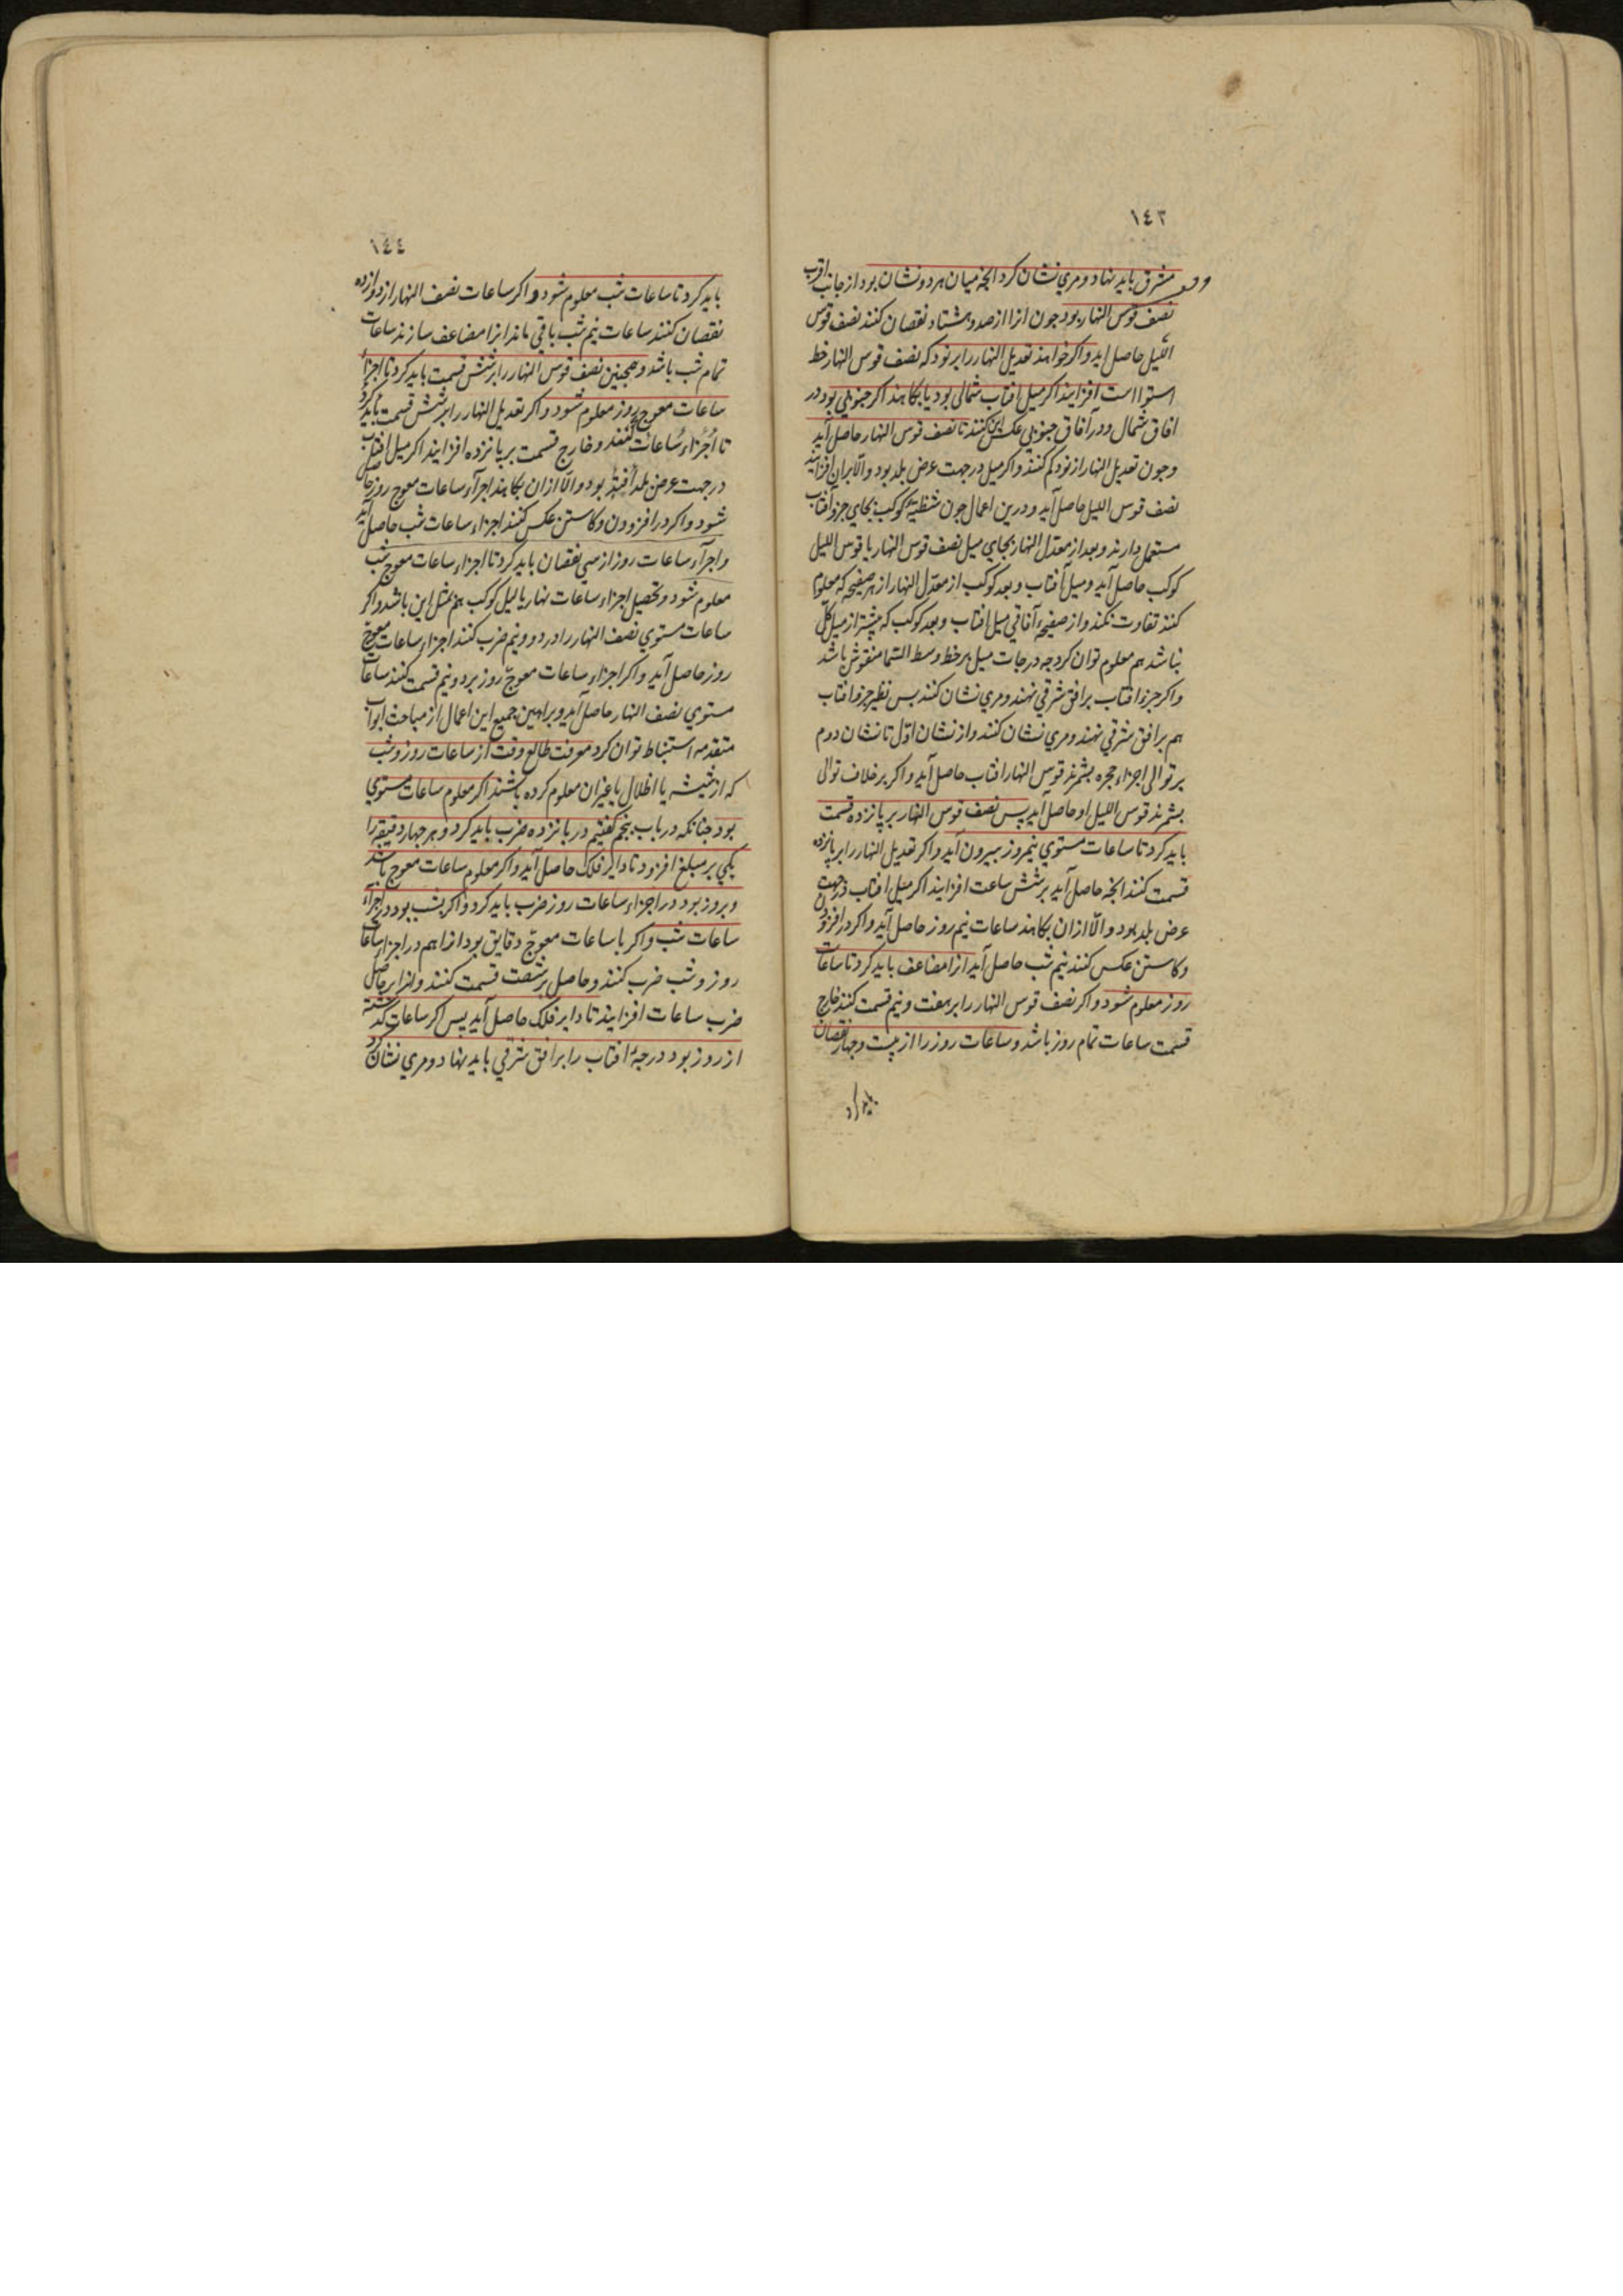 ١٤٣
مشرق باید نهاد و مري نشان کرد انجه میان هر دو نشان بود از جانب اقرب
نصف قوس النهار بود جون انرا از صد و هشتاد نقصان کنند نصف قوس
اللّیل حاصل اید و اکر خواهند تعدیل النهار را بر نود که نصف قوس النهار خط
استوا است افزایند اکر میل افتاب شمالی بود یا بکاهند اکر جنوبي بود در
افاق شمال و در آفاق جنوبي عکس این کنند تا نصف قوس النهار حاصل آید
و جون تعدیل النهار از نود کم کنند و اکر میل در جهت عرض بلد بود و الّا بران افزایند
نصف قوس اللیل حاصل آید و درین اعمال جون شظیّهٔ کوکب بجاي جزو آفتاب
مستعمل دارند و بعد از معدل النهار بجاي میل نصف قوس النهار یا قوس اللیل
کوکب حاصل آید و میل آفتاب و بعد کوکب از معدل النهار از هر صفیحه که معلوم
کنند تفاوت نکند و از صفیحهٔ آفاقي میل افتاب و بعد کوکب که بیشتر از میل کلّ
نباشد هم معلوم توان کرد جه درجات میل بر خط وسط السّما منقوش باشد
و اکر جزء افتاب بر افق شرقي نهند و مري نشان کنند بس نظیر جزو افتاب
هم بر افق شرقي نهند و مري نشان کنند و از نشان اوّل تا نشان دوم
بر توالی اجزاء حجره بشمرند قوس النهار افتاب حاصل آید و اکر بر خلاف توالی
بشمرند قوس اللیل او حاصل آید پس نصف قوس النهار بر پانزده قسمت
باید کرد تا ساعات مستوي نیمروز بیرون آید و اکر تعدیل النهار را بر پانزده
قسمت کنند انجه حاصل آید بر شش ساعت افزایند اکر میل افتاب در جهت
عرض بلد بود و الّا ازان بکاهند ساعات نیم روز حاصل آید و اکر در افزودن
و کاستن عکس کنند نیم شب حاصل آید انرا مضاعف باید کرد تا ساعات
روز معلوم شود و اکر نصف قوس النهار را بر هفت و نیم قسمت کنند خارج
قسمت ساعات تمام روز باشد و ساعات روز را از بیست و جهار نقصان
باید کرد
١٤٤
باید کرد تا ساعات شب معلوم شود و اکر ساعات نصف النهار از دوازده
نقصان کنند ساعات نیم شب باقي ماند انرا مضاعف سازند ساعات
تمام شب باشد و همجنین نصف قوس النهار را بر شش قسمت باید کرد تا اجزاء
ساعات معوج روز معلوم شود و اکر تعدیل النهار را بر شش قسمت باید کرد
تا اجزاء ساعات کنند و خارج قسمت بر پانزده افزایند اکر میل افتاب
در جهت عرض بلد بود و الّا ازان بکاهند اجزآء ساعات معوج روز حاصل
شود و اکر در افزودن و کاستن عکس کنند اجزاء ساعات شب حاصل آید
و اجزآء ساعات روز از سي نقصان باید کرد تا اجزاء ساعات معوج شب
معلوم شود و تحصیل اجزاء ساعات نهار یا لیل کوکب هم مثل این باشد و اکر
ساعات مستوي نصف النهار را در دو و نیم ضرب کنند اجزاء ساعات معوجّ
روز حاصل آید و اکر اجزاء ساعات معوجّ روز بر دو و نیم قسمت کنند ساعات
مستوي نصف النهار حاصل آید و براهین جمیع این اعمال از مباحث ابواب
متقدمه استنباط توان کرد معرفت طالع وقت از ساعات روز و شب
که از شیشه یا اظلال یا غیران معلوم کرده باشند اکر معلوم ساعات مستوي
بود جنانکه در باب پنجم کفتیم در پانزده ضرب باید کرد و هر جهار دقیقه را
یکي بر مبلغ افزود تا دایر فلک حاصل آید و اکر معلوم ساعات معوج باشد
و بروز بود در اجزاء ساعات روز ضرب باید کرد و اکر بشب بود در اجزآء
ساعات شب و اکر با ساعات معوجّ دقایق بود انرا هم در اجزاء ساعات
روز و شب ضرب کنند و حاصل بر شصت قسمت کنند و انرا بر حاصل
ضرب ساعات افزایند تا دایر فلک حاصل آید پس اکر ساعات کذشته
از روز بود درجهٔ افتاب را بر افق شرقي باید نهاد و مري نشان کرد